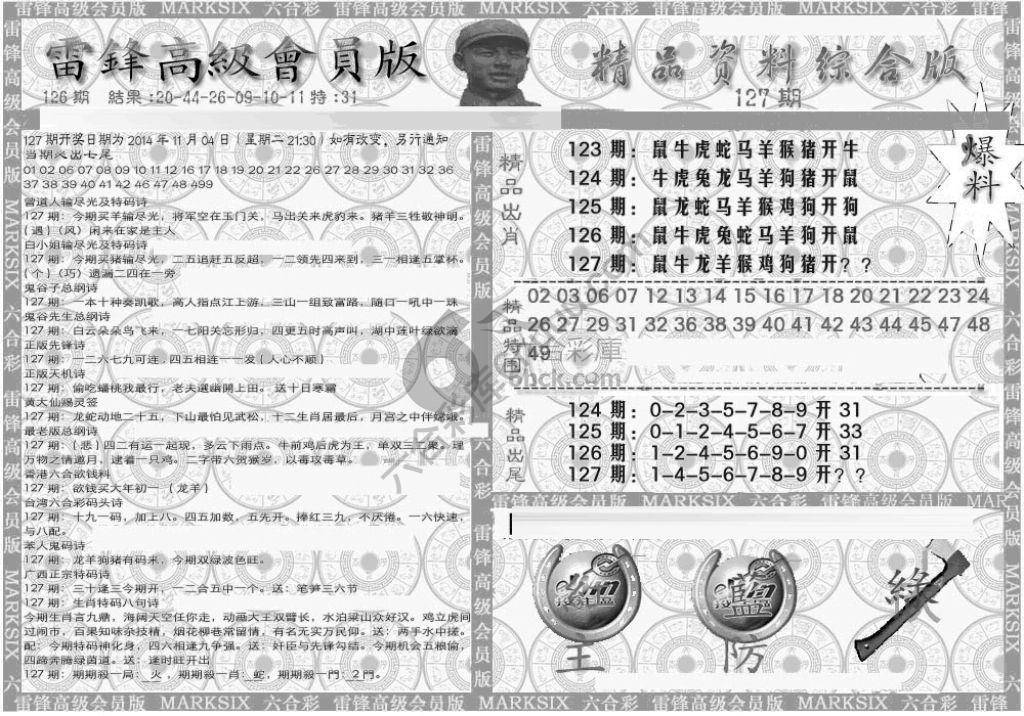 雷锋高级会员版 MARKSIX 六合彩 雷锋高级会员版 MARKSIX 六合彩 雷锋高级会员版 MARKSIX 六合彩 雷锋
雷鋒高級會員版
精品资料综合版
126期 結果:20-44-26-09-10-11特:31
127期
爆料
127期开奖日期为2014年11月04日(星期二21:30)如有改变,另行通知
当期必出七尾
01 02 06 07 08 09 10 11 12 16 17 18 19 20 21 22 26 27 28 29 30 31 32 36
37 38 39 40 41 42 46 47 48 499
曾道人输尽光及特码诗
127期: 今期买羊输尽光,将军空在玉门关,马出关来虎豹来。猪羊三牲敬神明。
(遇)(风)闲来在家是主人
白小姐输尽光及特码诗
127期: 今期买猪输尽光,二五追赶五反超,一二领先四来到,三一相逢五掌杯。
(个)(巧)遗漏二四在一旁
鬼谷子总纲诗
127期: 一本十种奏凯歌,高人指点江上游,三山一组致富路,随口一吼中一珠
鬼谷先生总纲诗
127期: 白云朵朵鸟飞来,一七阳关忘形归,四更五时高声叫,湖中莲叶绿欲滴
正版先锋诗
127期: 一二六七九可连,四五相连一一发(人心不顺)
正版天机诗
127期: 偷吃蟠桃我最行,老夫逍幽閑上田。送十日寒霜
黄大仙赐灵签
127期: 龙蛇动地二十五,下山最怕见武松,十二生肖居最后,月宫之中伴嫦娥。
最老版总纲诗
127期:(悲)四二有运一起现,多云下雨点。牛前鸡后虎为王,单双三二果。理
万物之情邀月,逮着一只鸡。二字带六贺猴岁,以毒攻毒草。
香港六合欲钱料
127期: 欲钱买大年初一 (龙羊)
台湾六合彩码头诗
127期: 十九一码,加上八。四五加数,五先开。捧红三九,不厌倦。一六快速,
与八配。
苯人鬼码诗
127期: 龙羊狗猪有码来,今期双绿波色旺。
广西正宗特码诗
127期: 三十逢三今期开,一二合五中一个。送: 笔笋三六节
127期: 生肖特码八句诗
今期生肖言九鼎,海阔天空任你走,动画大王双臂长,水泊梁山众好汉。鸡立虎间
过闹市,百果知味杂技精,烟花柳巷常留情,有名无实万民仰。送: 两手水中搓。
配: 今期特码神化身,四六相逢九争强。送: 奸臣与先锋勾结。今期机会五粮偷,
四蹄奔腾绿茵道。送: 逢时旺开出
127期: 期期殺一局: 火,期期殺一肖: 蛇,期期殺一門: 2門。
精品出肖
123期: 鼠牛虎蛇马羊猴猪开牛
124期: 牛虎兔龙马羊狗猪开鼠
125期: 鼠龙蛇马羊猴鸡狗开狗
126期: 鼠牛虎兔蛇马羊狗开鼠
127期: 鼠牛龙羊猴鸡狗猪开??
精品特围
02 03 06 07 12 13 14 15 16 17 18 20 21 22 23 24
26 27 29 31 32 36 38 39 40 41 42 43 44 45 47 48
49
精品出尾
124期: 0-2-3-5-7-8-9开31
125期: 0-1-2-4-5-6-7开33
126期: 1-2-4-5-6-9-0开31
127期: 1-4-5-6-7-8-9开??
雷锋高级会员版 MARKSIX 六合彩 雷锋高级会员版 MARK
主
防
藍
绿
雷锋高级会员版 MARKSIX 六合彩 雷锋高级会员版 MARKSIX 六合彩 雷锋高级会员版 MARKSIX 六合彩 雷锋